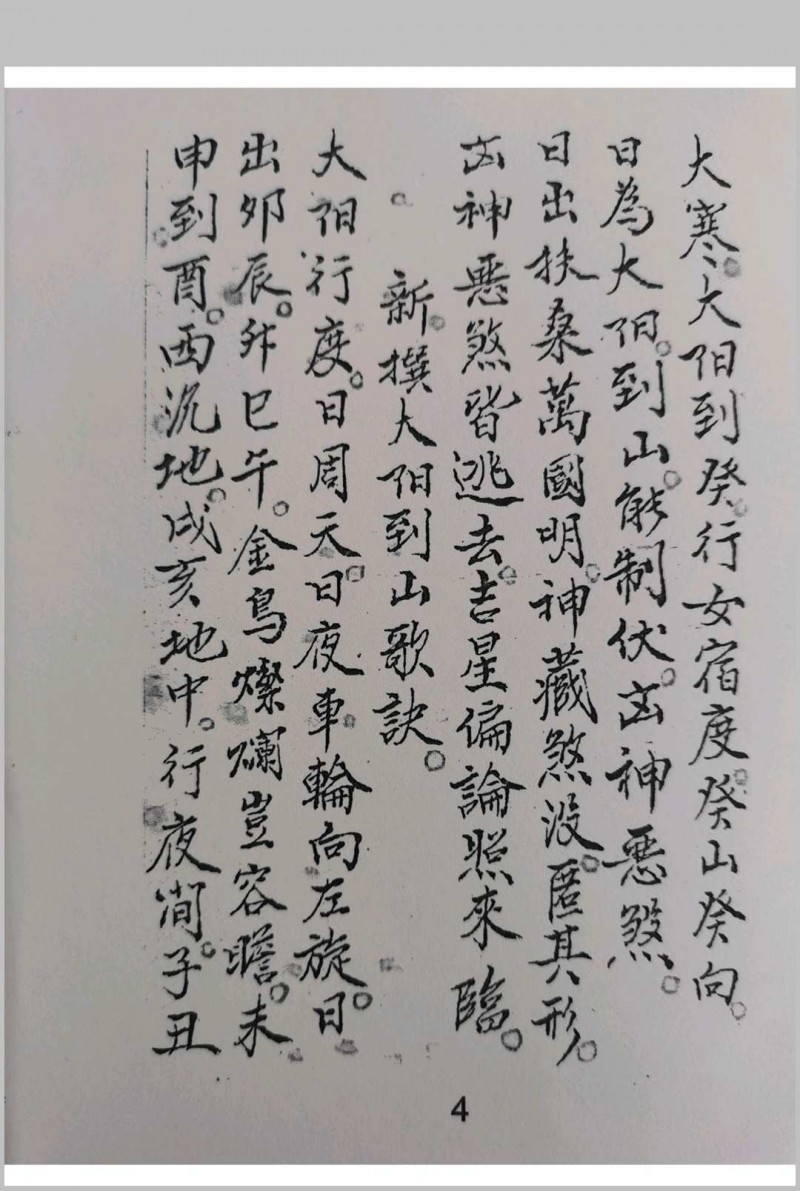 大寒。大阳到癸行女宿度。癸山癸向。
日為大阳。到山。能制伏。凶神惡煞。
日出扶桑萬國明。神藏煞没。匿其形。
凶神惡煞皆逃去。吉星偏論照來臨。
新撰大阳到山歌訣。
大阳行度。日周天。日夜車輪向左旋。日
出夘辰。升巳午。金烏燦爛豈容瞻。未
申到酉。西沉地。戌亥地中。行夜间。子丑
4